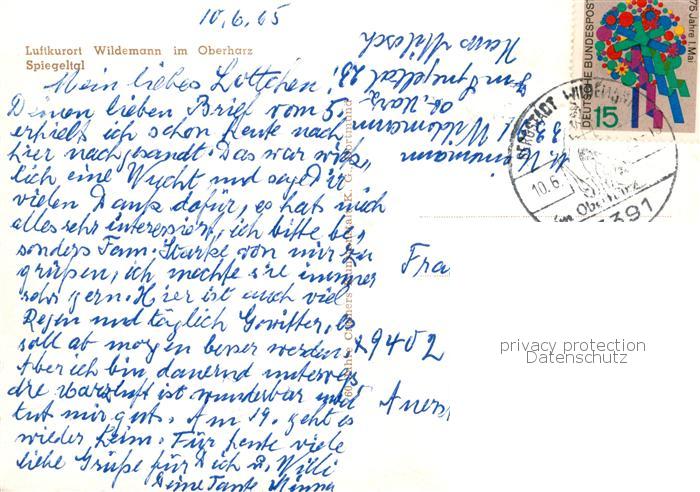 10.6.65
Luftkurort Wildemann im Oberharz
Spiegeltal
Mein liebes Lottchen!
Deinen lieben Brief vom 5.
erhielt ich schon heute nach
hier nachgesandt. Das war wirk
lich eine Wucht und sage Dir
vielen Dank dafür, es hat mich
alles sehr interessiert, ich bitte be,
sonders Fam. Starke von mir zu
grüßen, ich mochte sie immer
sehr gern. Hier ist auch viel
Regen und täglich Gewitter, es
soll ab morgen besser werden.
Aber ich bin dauernd unterwegs
die Harzluft ist wunderbar und
tut mir gut. Am 19. geht es
wieder heim. Für heute viele
liebe Grüße für Dich u. Willi
Deine Tante Minna
Wildemann
Haus
75 Jahre 1. Mai
DEUTSCHE BUNDESPOST
15
10.6.
im Oberharz
3391
Fra
x9402
Auers
privacy protection
Datenschutz